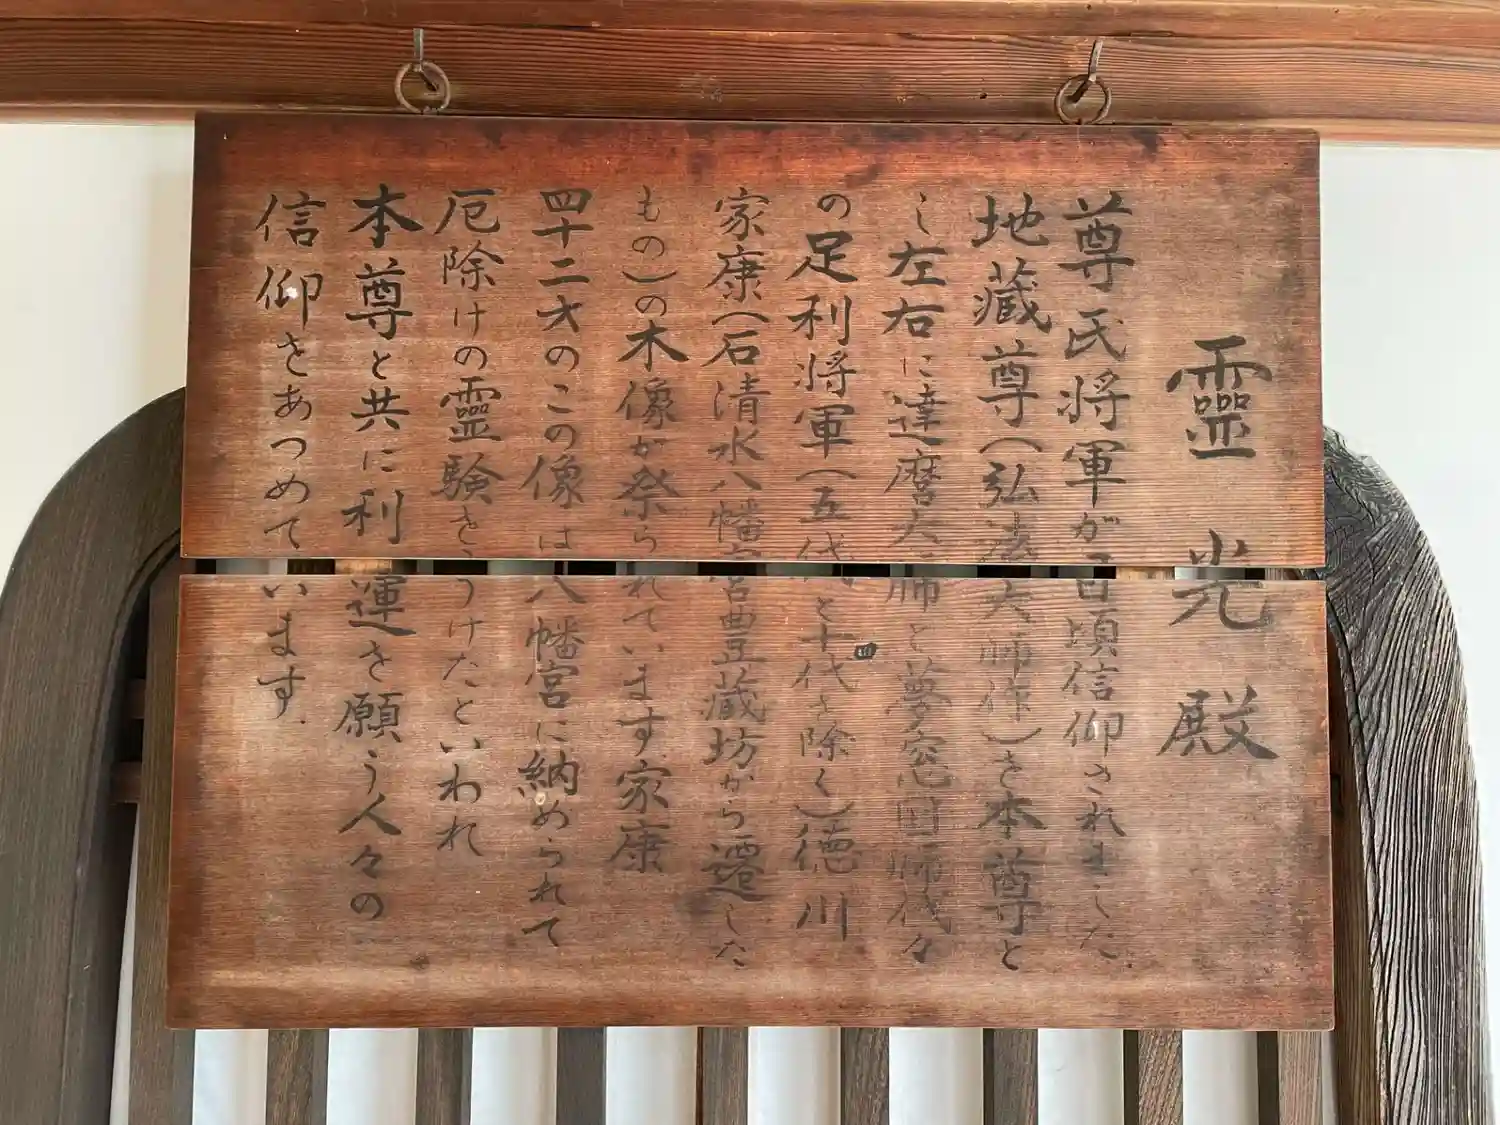 靈光殿
尊氏将軍が日頃信仰されました
地蔵尊（弘法大師作）を本尊と
し左右に達磨大師と夢窓国師代々
の足利将軍（五代と十代を除く）徳川
家康（石清水八幡宮豊蔵坊から遷した
もの）の木像が祭られています。家康
四十二才のこの像は八幡宮に納められて
厄除けの靈験をうけたといわれ
本尊と共に利運を願う人々の
信仰をあつめています。